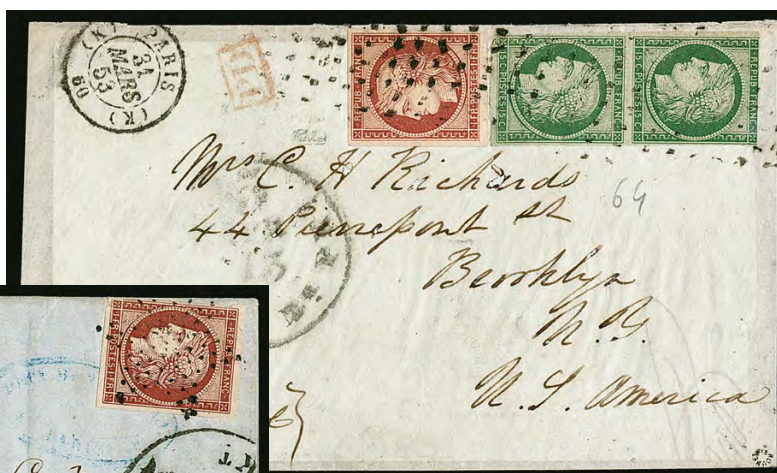 PARIS
(K) (K)
31
MARS
53
60
PD
REPUB. FRANC.
1FR. POSTES. 1FR
REPUB. FRANC.
15C. POSTES. 15C
REPUB. FRANC.
15C. POSTES. 15C
Mrs C. H Richards
64
44 Pierrepont St
Brooklyn
N.Y.
U.S. America
REPUB. FRANC.
1FR. POSTES. 1FR